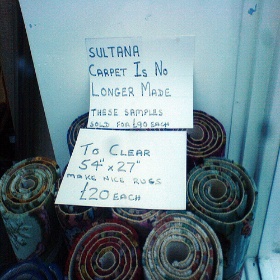 SULTANA
CARPET IS NO
LONGER MADE
THESE SAMPLES
SOLD FOR £90 EACH
TO CLEAR
54" x 27"
MAKE NICE RUGS
£20 EACH